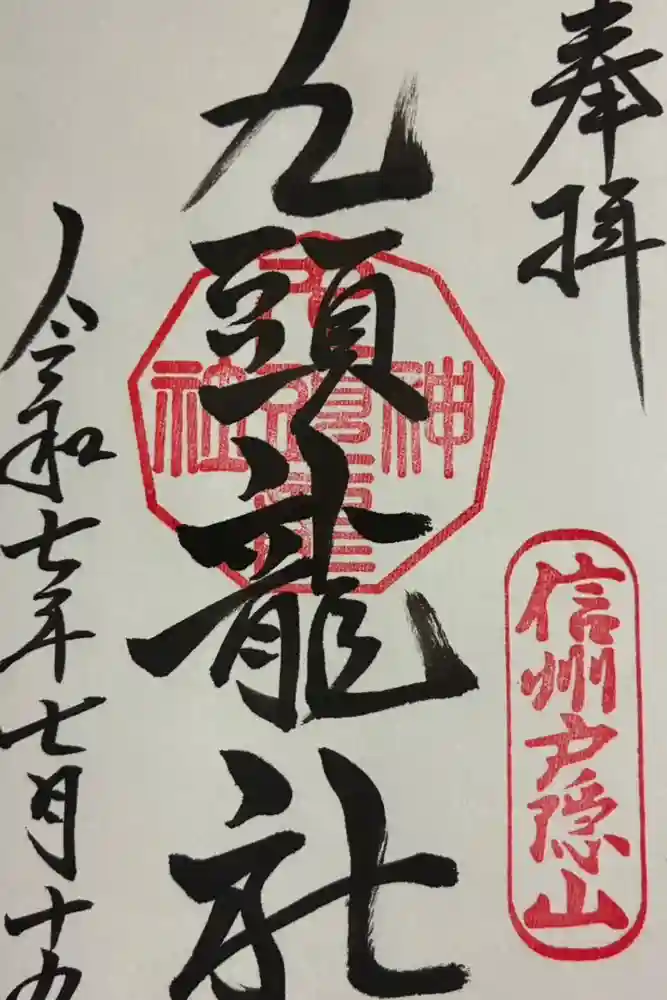 奉拝
信州戸隠山
九頭龍社
九頭龍神社
令和七年七月十九